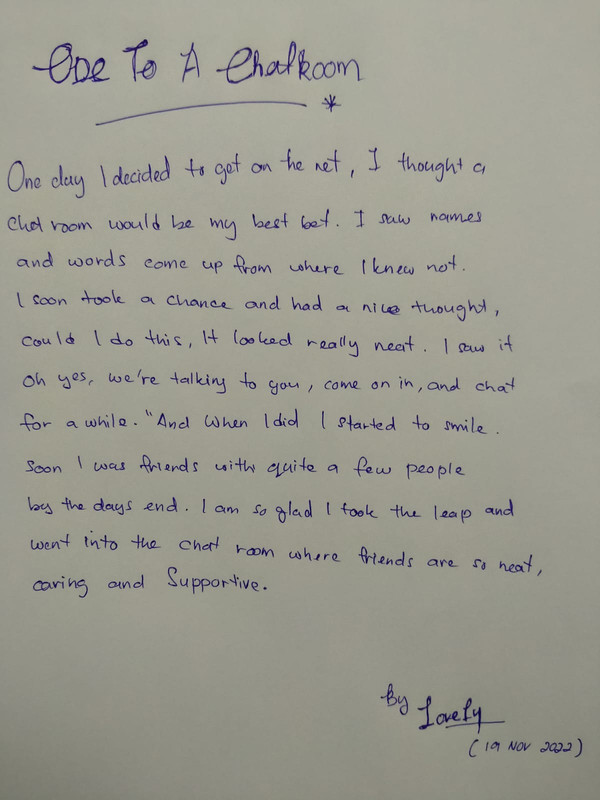 Ode To A ChatRoom
*
One day I decided to get on the net, I thought a
chat room would be my best bet. I saw names
and words come up from where I knew not.
I soon took a chance and had a nice thought,
could I do this, It looked really neat. I saw it
oh yes, we're talking to you, come on in, and chat
for a while. "And when I did I started to smile.
Soon I was friends with quite a few people
by the days end. I am so glad I took the leap and
went into the chat room where friends are so neat,
caring and Supportive.
By Lovely
(19 NOV 2022)